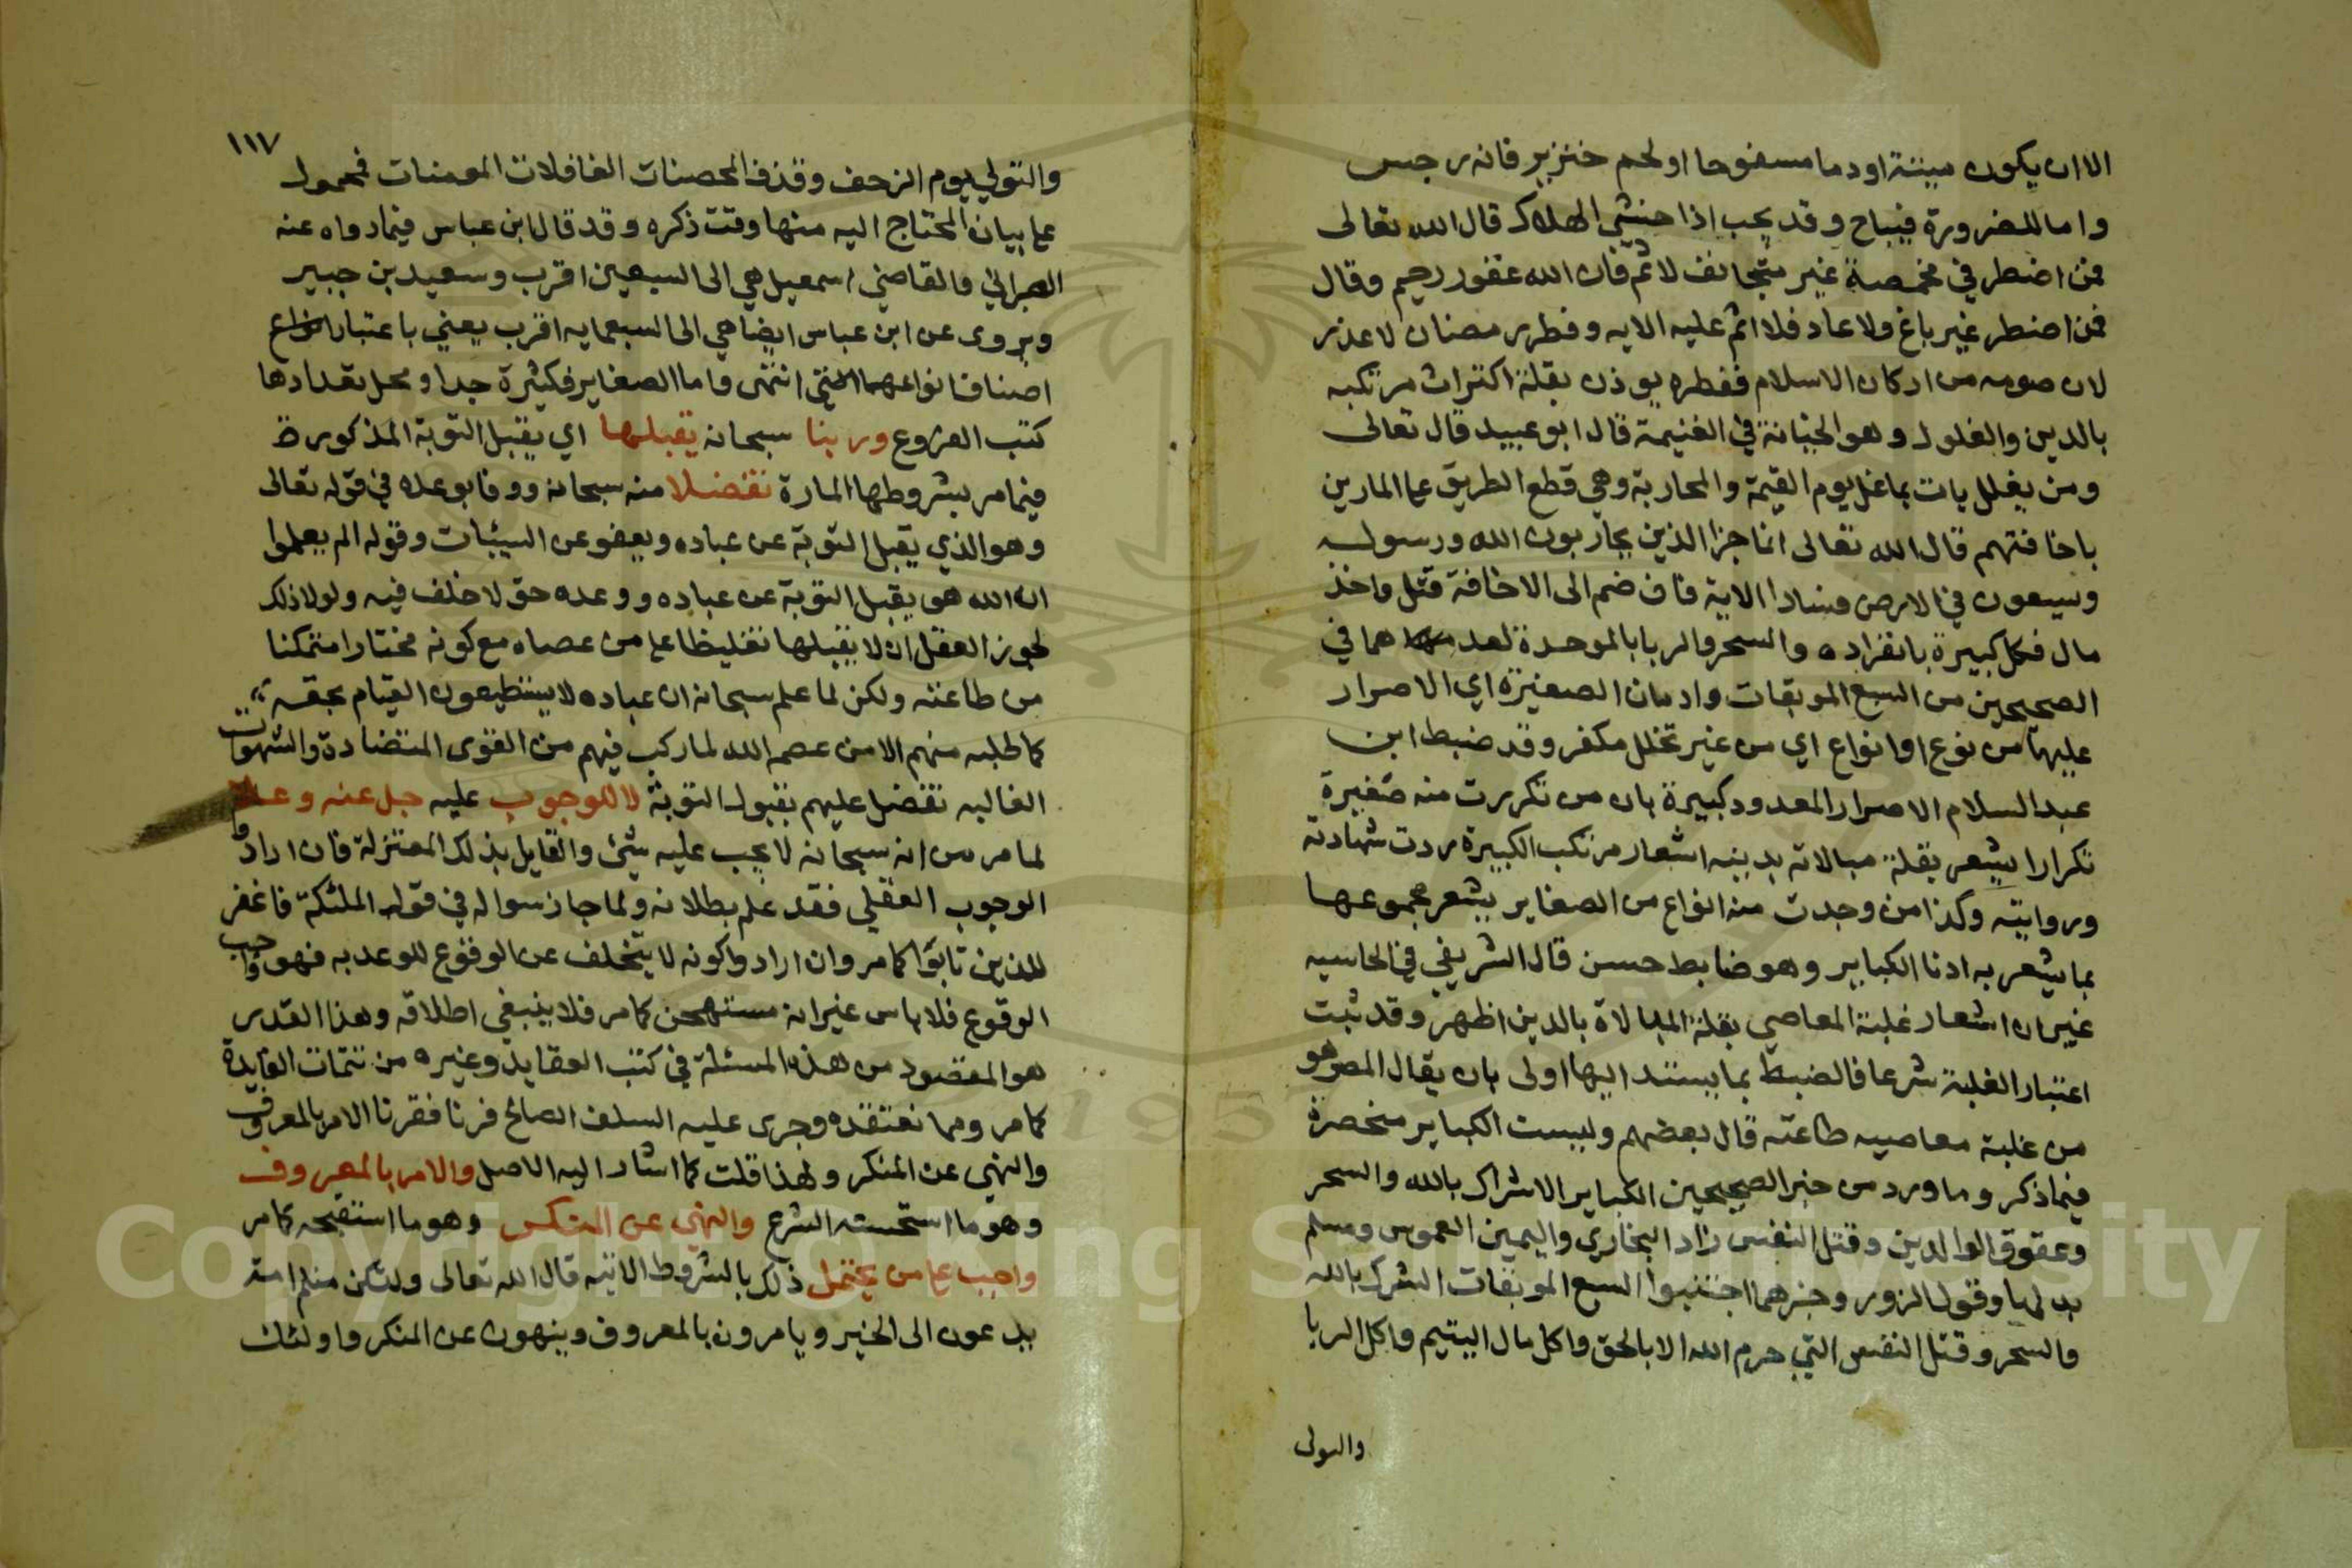 الا ان يكون ميتة او دما مسفوحا او لحم خنزير فانه رجس
واما للضرورة فيباح وقد يجب اذا خشي الهلاك قال الله تعالى
فمن اضطر في مخمصة غير متجانف لاثم فان الله غفور رحيم وقال
فمن اضطر غير باغ ولا عاد فلا اثم عليه الايه وفطر رمضان لا عذر
لان صومه من اركان الاسلام ففطره يوذن بقلة اكتراث مرتكبه
بالدين والغلول وهو الخيانة في الغنيمة قال ابو عبيد قال تعالى
ومن يغلل يات بما غل يوم القيمة والمحاربة وهي قطع الطريق على المارين
باخافتهم قال الله تعالى انما جزا الذين يحاربون الله ورسوله
ويسعون في الارض فسادا الاية فان ضم الى الاخافة قتل واخذ
مال فكل كبيرة بانفراده والسحر والربا بالموحدة لعدهما في
الصحيحين من السبع الموبقات وادمان الصغيرة اي الاصرار
عليها من نوع او انواع اي من غير تخلل مكفر وقد ضبط ابن
عبد السلام الاصرار المعدود كبيرة بان من تكررت منه صغيرة
تكرارا يشعر بقلة مبالاته بدينه اشعار مرتكب الكبيرة ردت شهادته
وروايته وكذا من وجدت منه انواع من الصغاير يشعر مجموعها
بما يشعر به ادنا الكباير وهو ضابط حسن قال الشريفي في الحاسيه
غير ان اشعار غلبة المعاصي بقلة المبالاة بالدين اظهر وقد ثبت
اعتبار الغلبة شرعا فالضبط بما يستند اليها اولى بان يقال المصر هو
من غلبة معاصيه طاعته قال بعضهم وليست الكباير منحصرة
فيما ذكر وما ورد من خبر الصحيحين الكباير الاشراك بالله والسحر
وعقوق الوالدين وقتل النفس زاد البخاري واليمين الغموس ومسلم
بدلها وقول الزور وخبرهما اجتنبوا السبع الموبقات الشرك بالله
والسحر وقتل النفس التي حرم الله الا بالحق واكل مال اليتيم واكل الربا
والتولى
١١٧
والتولي يوم الزحف وقذف المحصنات الغافلات المومنات فمحمول
على بيان المحتاج اليه منها وقت ذكره وقد قال ابن عباس فيما رواه عنه
الطبراني والقاضي اسمعيل هي الى السبعين اقرب وسعيد بن جبير
ويروى عن ابن عباس ايضا هي الى السبعمايه اقرب يعني باعتبار
اصناف انواعها انتهى واما الصغاير فكثيرة جدا ومحل تعدادها
كتب الفروع وربنا سبحانه يقبلها اي يقبل التوبة المذكورة
فيما مر بشروطها المارة تفضلا منه سبحانه ووفا بوعده في قوله تعالى
وهو الذي يقبل التوبة عن عباده ويعفو عن السيئات وقوله الم يعلموا
ان الله هو يقبل التوبة عن عباده ووعده حق لا خلف فيه ولولا ذلك
لجوز العقل ان لا يقبلها تغليظا على من عصاه مع كونه مختارا متمكنا
من طاعته ولكن لما علم سبحانه ان عباده لا يستطيعون القيام بحقه
كما طلبه منهم الا من عصم الله لما ركب فيهم من القوى المتضادة والشهوات
الغالبه تفضل عليهم بقبول التوبة لا للوجوب عليه جل عنه وعلا
لما مر من انه سبحانه لا يجب عليه شئ والقايل بذلك المعتزلة فان ارادوا
الوجوب العقلي فقد علم بطلانه ولما جاز سواله في قوله الملئكة فاغفر
للذين تابوا كما مر وان ارادوا كونه لا يتخلف عن الوقوع للوعد به فهو واجب
الوقوع فلا باس غير انه مستهجن كما مر فلا ينبغي اطلاقه وهذا القدر
هو المقصود من هذه المسئلة في كتب العقايد وغيره من تتمات الفايدة
كما مر ومما نعتقده وجرى عليه السلف الصالح فرنا فقرنا الامر بالمعروف
والنهي عن المنكر ولهذا قلت كما اشار اليه الاصل والامر بالمعروف
وهو ما استحسنه الشرع والنهي عن المنكر وهو ما استقبحه كما مر
واجب على من يحتمل ذلك بالشروط الاتيه قال الله تعالى ولتكن منكم امة
يدعون الى الخير ويامرون بالمعروف وينهون عن المنكر واولئك
Copyright © King Saud University
1957